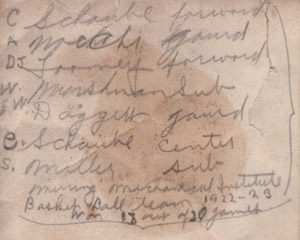 C Schaube forword
A McCht gaurd
DJ Toomey forword
W. Marshman Sub
S.W. Daggett gaurd
C. Schaube Center
S. Miller sub
Mining Mechanical Institute
Basket Ball team 1922-23
Won 18 out of 20 games